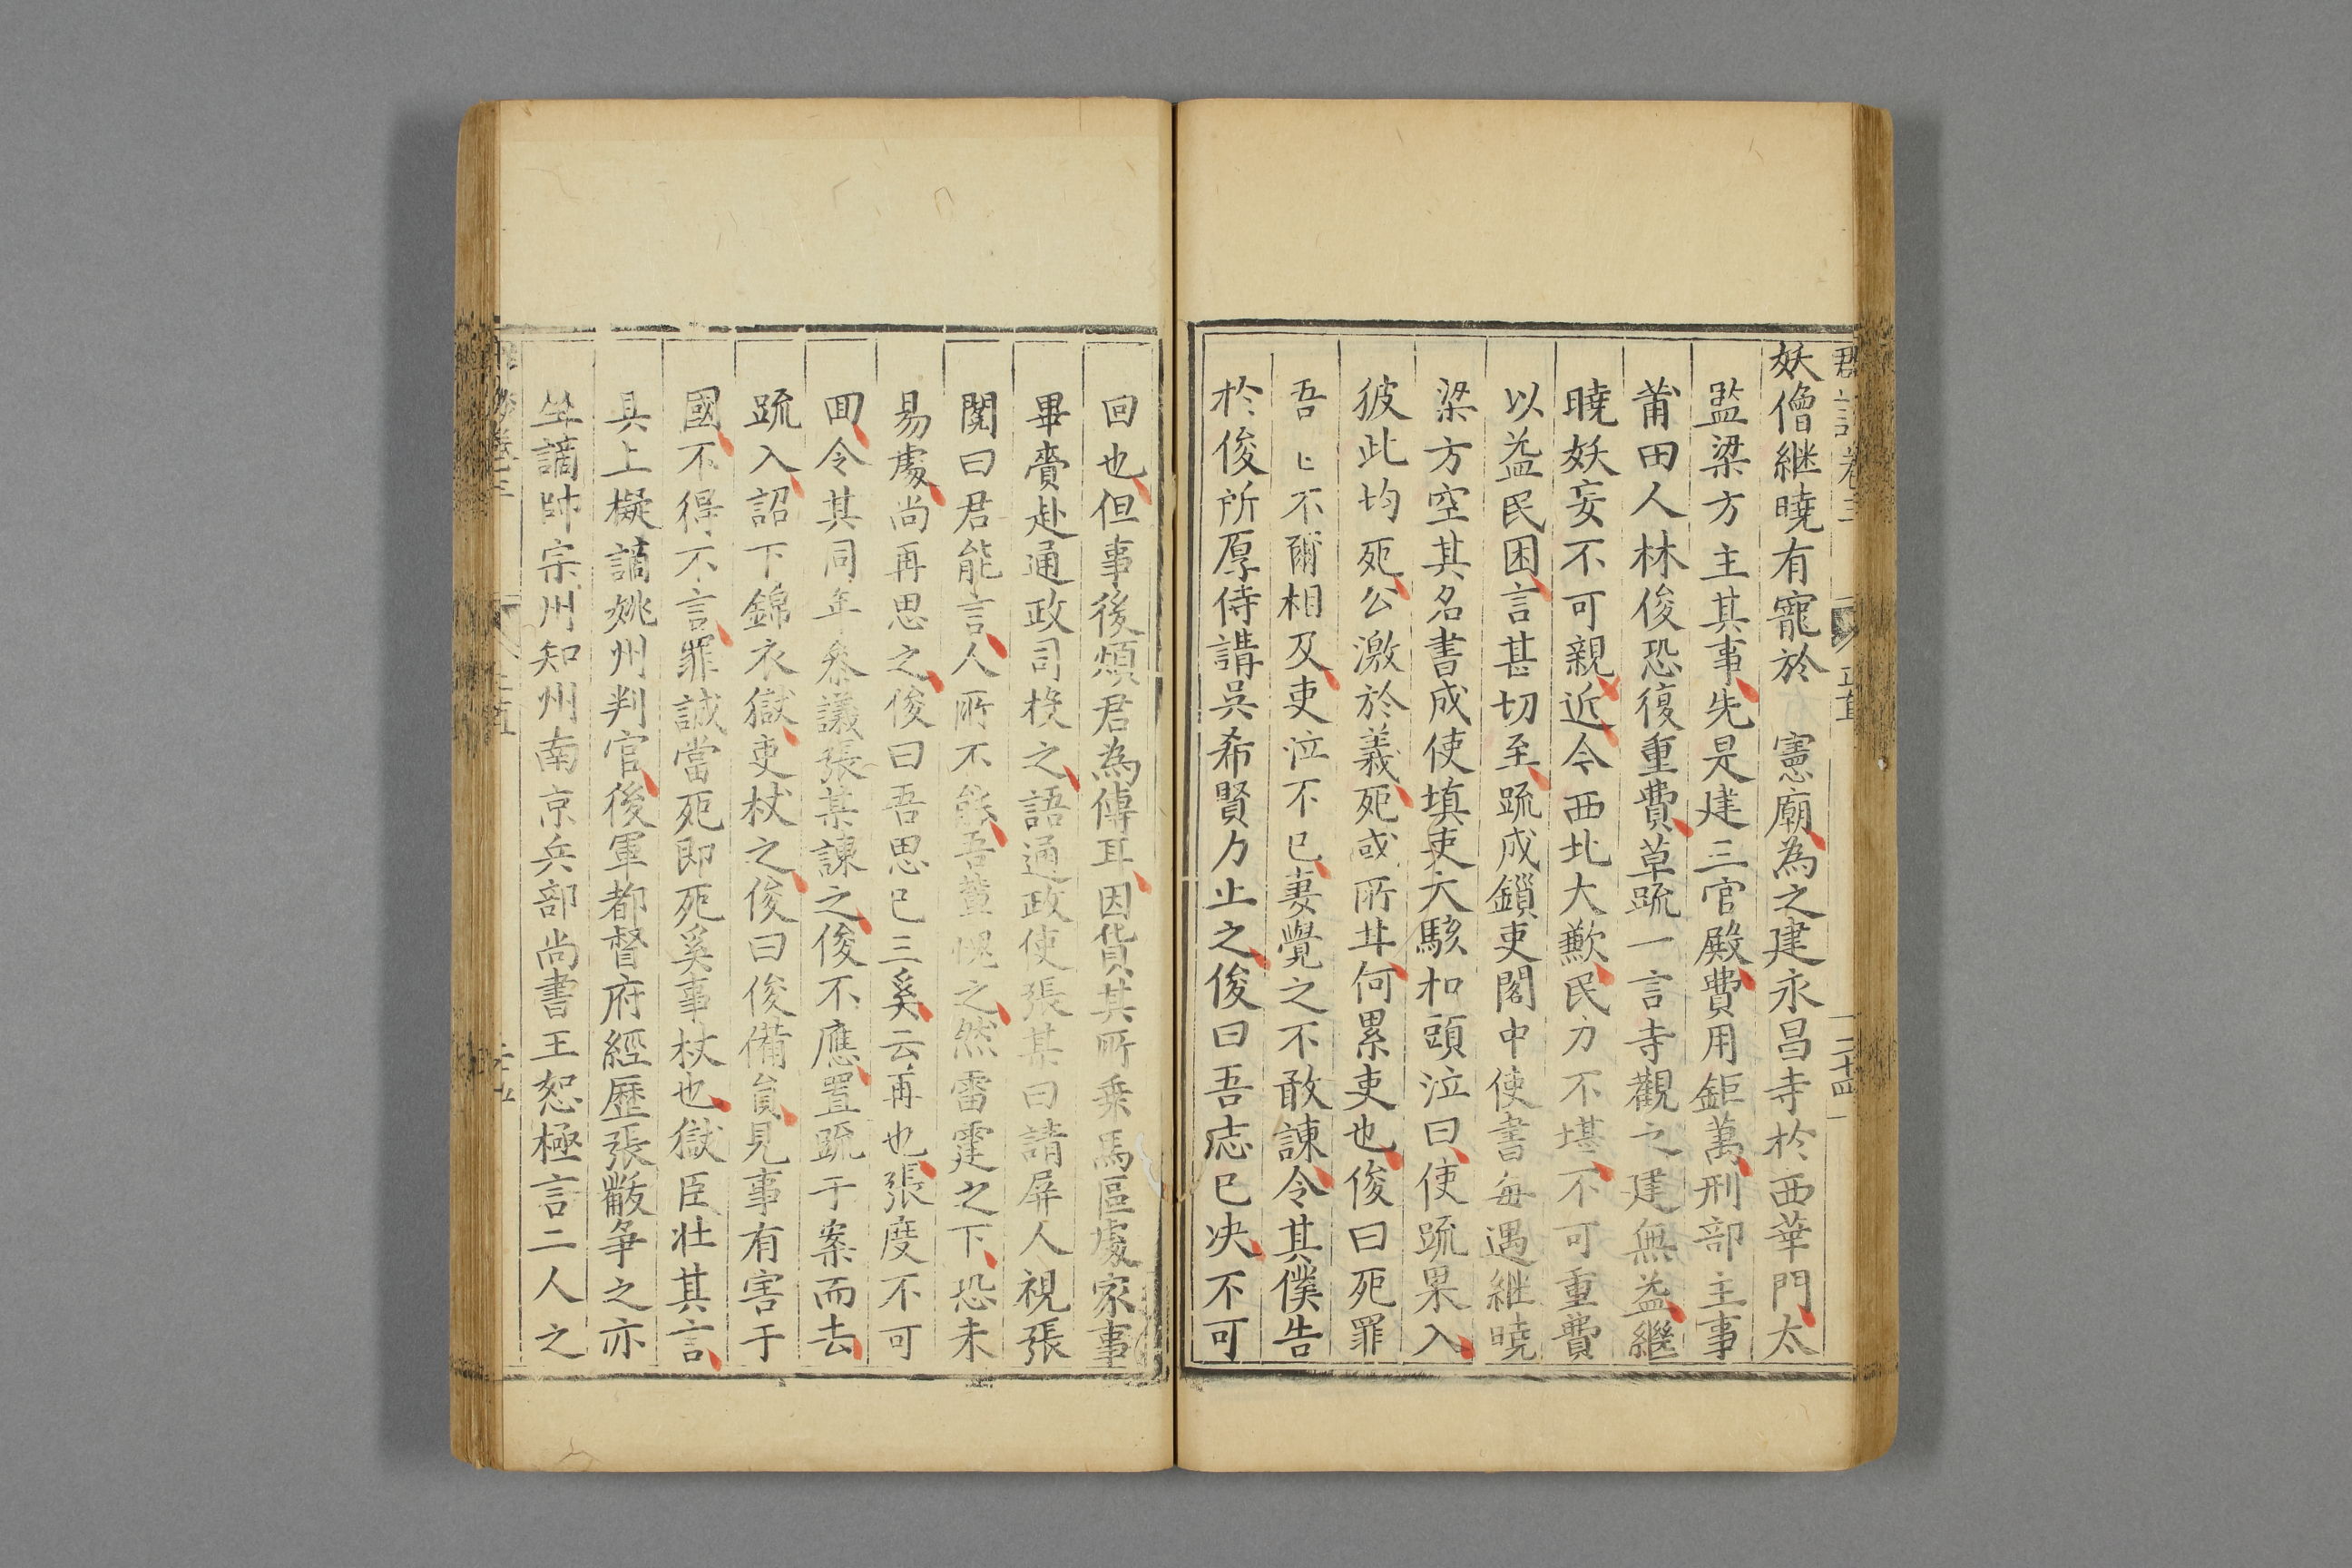 妖僧継曉有寵於　憲廟為之建永昌寺於西華門太
監梁方主其事先是建三官殿費用鉅萬刑部主事
莆田人林俊恐復重費草疏一言寺觀之建無益繼
曉妖妄不可親近今西北大歉民力不堪不可重費
以益民困言甚切至疏成鎖吏閣中使書每遇継曉
梁方空其名書成使填吏大駭扣頭泣曰使疏果入
彼此均死公激於義死或所甘何累吏也俊曰死罪
吾〻不爾相及吏泣不已妻覺之不敢諫令其僕告
於俊所厚侍講吳希賢力止之俊曰吾志已决不可
回也但事後煩君為傳耳因貨其所乗馬區處家事
畢賫赴通政司投之語通政使張某曰請屏人視張
閱曰君能言人所不能吾輩愧之然雷霆之下恐未
易處尚再思之俊曰吾思已三奚云再也張度不可
囬令其同年叅議張某諫之俊不應置疏于案而去
疏入詔下錦衣獄吏杖之俊曰俊備貟見事有害于
國不得不言罪誠當死即死奚事杖也獄臣壮其言
具上擬謫姚州判官後軍都督府經歷張黻争之亦
坐謫帥宗州知州南京兵部尚書王恕極言二人之
卷三
正直
二十四